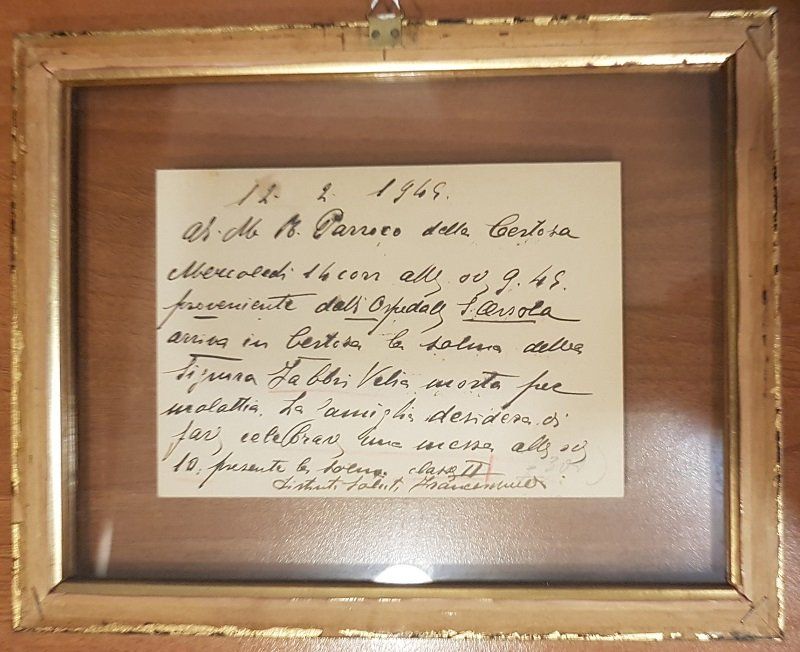 12. 2. 1945.
Al M. R. Parroco della Certosa
Mercoledi 14 corr alle ore 9.45.
proveniente dall'Ospedale S. Orsola
arriva in Certosa la salma della
Signora Fabbri Velia morta per
malattia. La famiglia desidera di
far celebrare una messa alle ore
10. presente la salma. classe II
Distinti Saluti